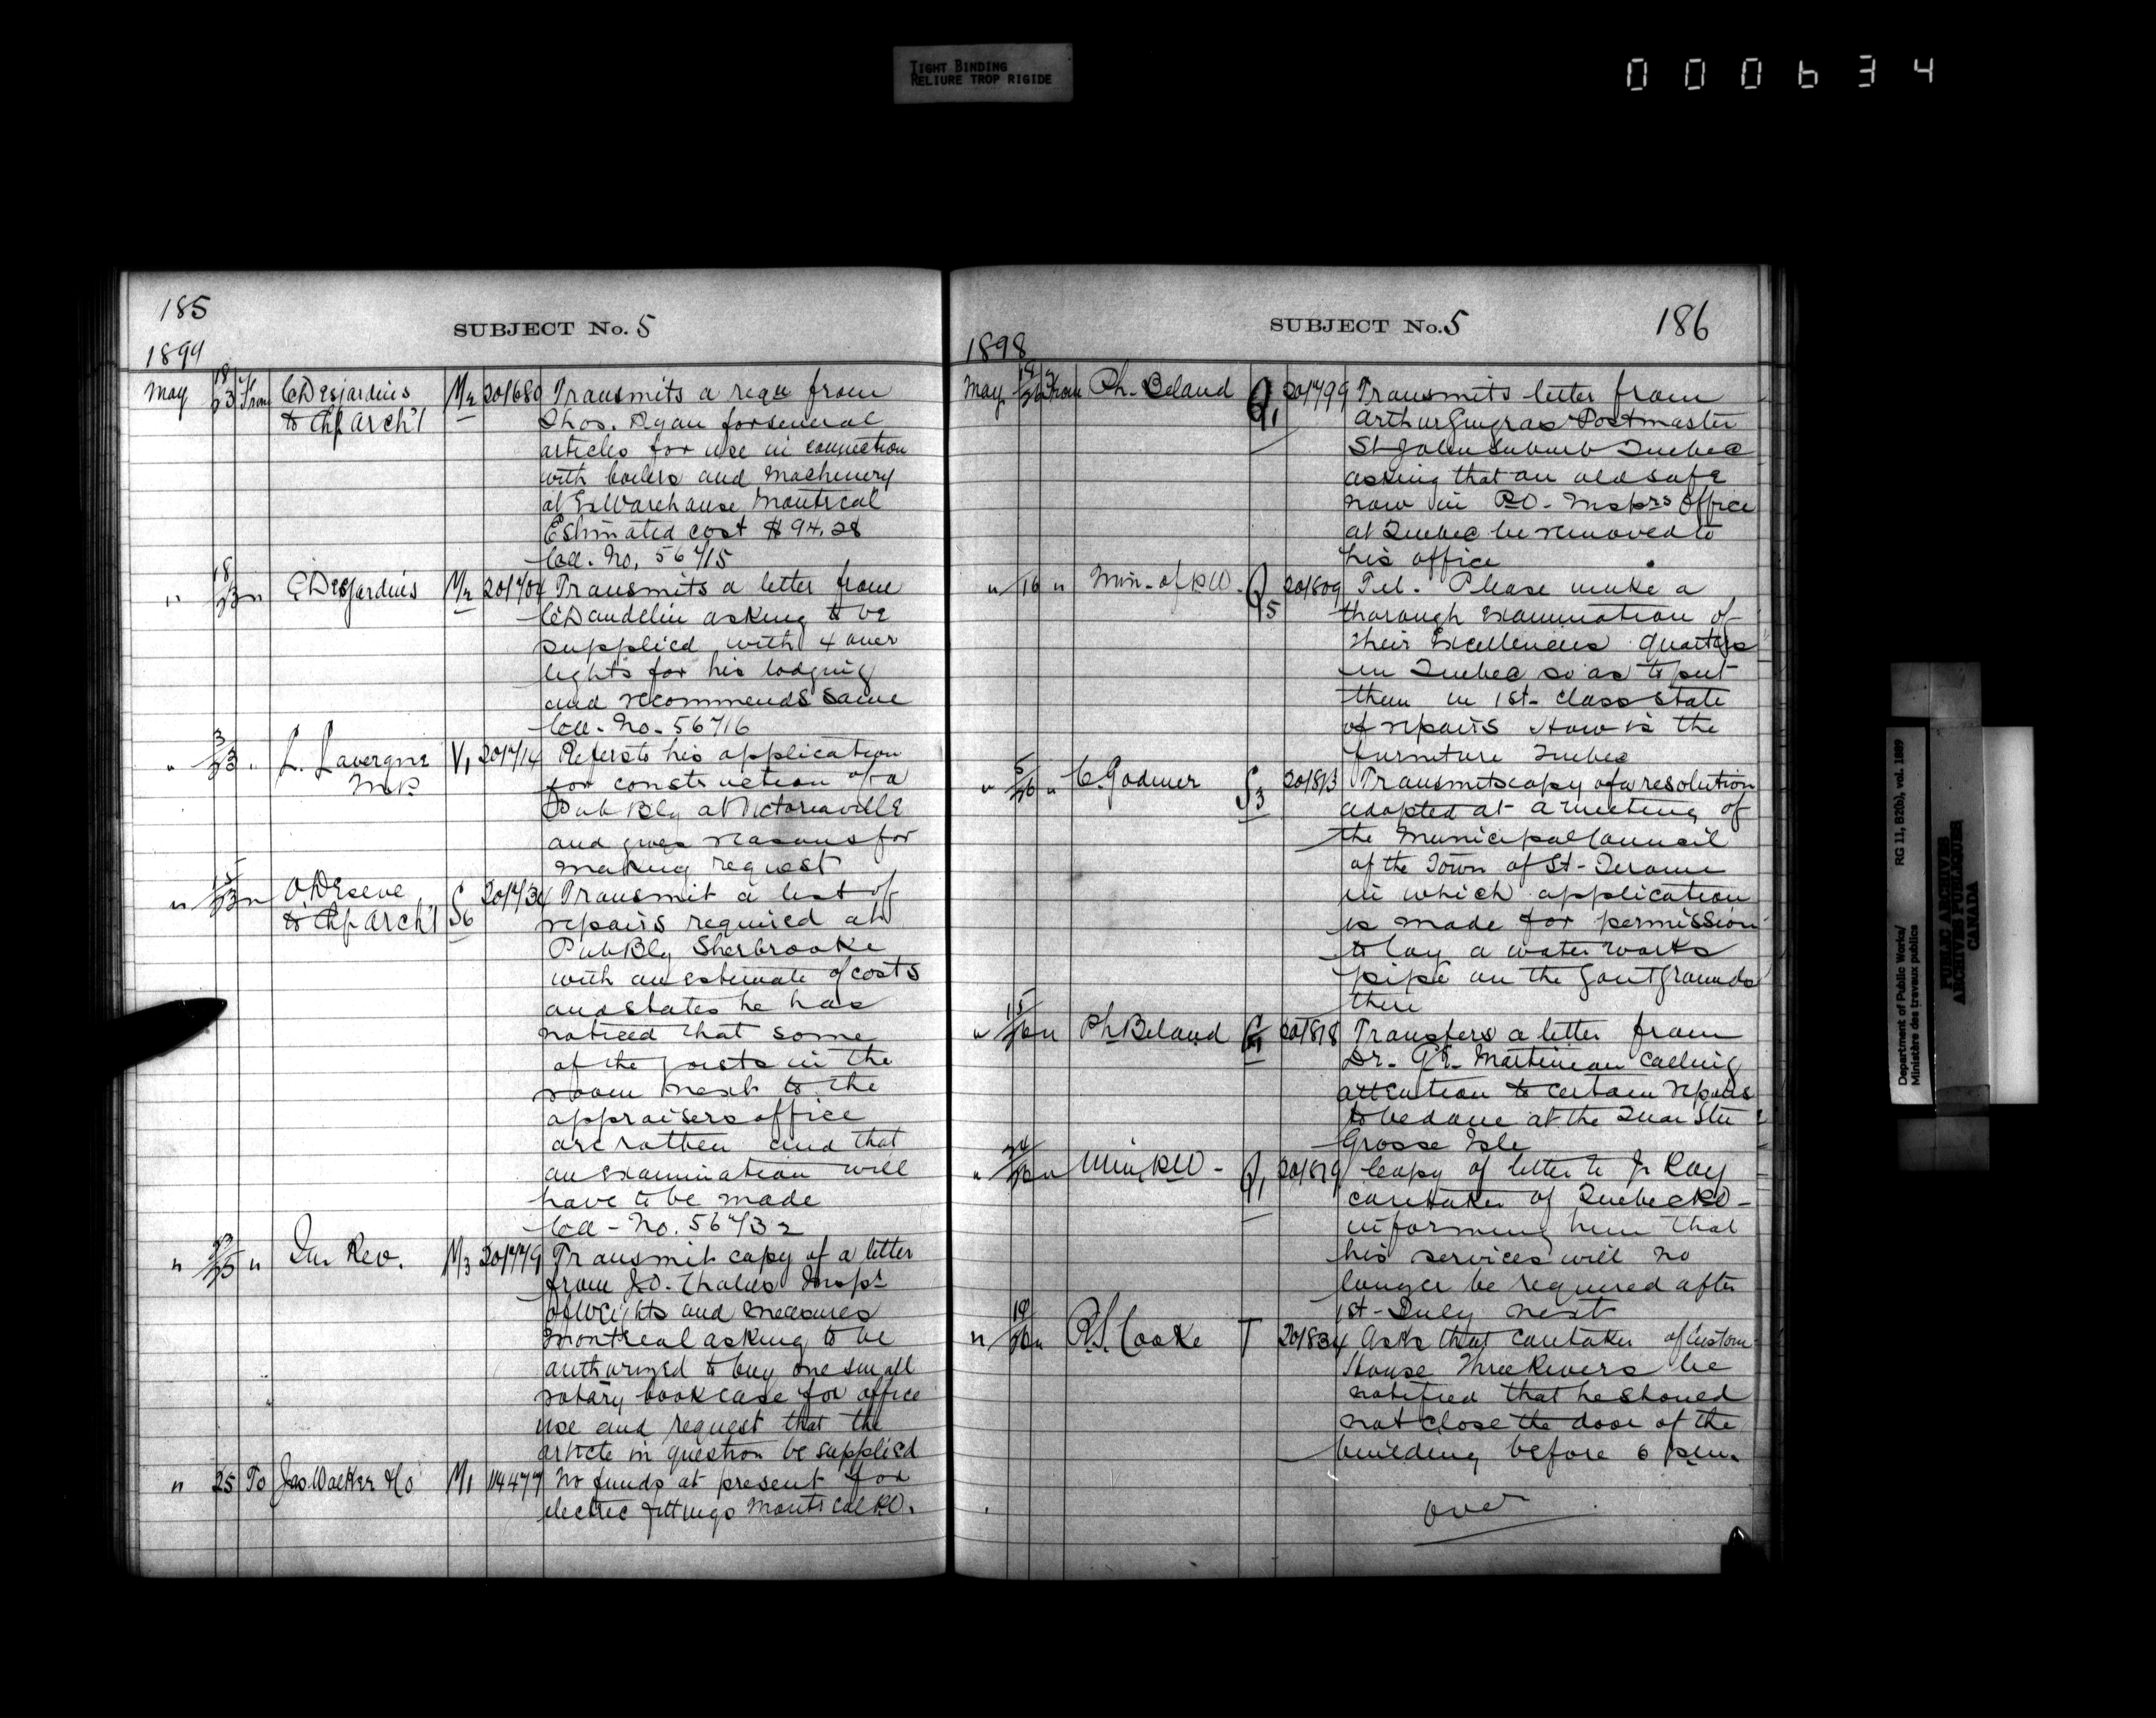 TIGHT BINDING
RELIURE TROP RIGIDE
000634
185
SUBJECT No. 5
1899
May 18/23 From C Desjardins M2 201680 Transmits a reqn from
to Chf Arch't Thos. Ryan for several
articles for use in connection
with boilers and machinery
at Ex Warehouse Montreal
Estimated cost $94.28
Col. No. 56715
" 18/23 " C Desjardins M2 201704 Transmits a letter from
C Dandelin asking to be
supplied with 4 over
lights for his lodging
and recommends same
Col. No. 56716
" 3/23 " L. Lavergne V1 201714 Refers to his application
M.P. for construction of a
Pub Blg at Victoriaville
and gives reasons for
making request
" 15/23 " O. Reseve 201734 Transmit a list of
to Chf Arch't S6 repairs required at
Pub Blg Sherbrooke
with an estimate of costs
and states he has
noticed that some
of the joists in the
room next to the
appraisers office
are rotten and that
an examination will
have to be made
Col - No. 56732
" 23/25 " In Rev. M3 201779 Transmit copy of a letter
from J.O. Chalus Inspr
of Weights and Measures
Montreal asking to be
authorized to buy one small
rotary book case for office
use and request that the
article in question be supplied
" 25 To Jas Walker & Co M1 114477 No funds at present for
electric fittings Montreal P.O.
SUBJECT No. 5
186
1898
May 19/26 From Ph. Beland Q1 201799 Transmits letter from
Arthur Gingras Postmaster
St John Suburb Quebec
asking that an old safe
now in P.O. Insprs Office
at Quebec be removed to
his office
" 16 " Min. of P.W. Q5 201809 Tel. Please make a
thorough examination of
their Excellencies quarters
in Quebec so as to put
them in 1st class state
of repairs How is the
furniture Quebec
" 5/26 " C. Godmer S3 201813 Transmits copy of a resolution
adopted at a meeting of
the Municipal Council
of the Town of St-Jerome
in which application
is made for permission
to lay a water works
pipe on the Govt grounds
there
" 15/26 " Ph Beland 201818 Transfers a letter from
Dr. G.E. Martineau calling
attention to certain repairs
to be done at the Quar Stn
Grosse Isle
" 24/26 " Min P.W. Q1 201819 Copy of letter to J. Roy
caretaker of Quebec P.O.
informing him that
his services will no
longer be required after
1st July next
" 19/26 " R.S. Cooke T 201834 Asks that caretaker of Custom
House Three Rivers be
notified that he should
not close the door of the
building before 6 p.m.
over
Department of Public Works/
Ministère des travaux publics
RG 11, B2(b), vol. 1889
PUBLIC ARCHIVES
ARCHIVES PUBLIQUES
CANADA